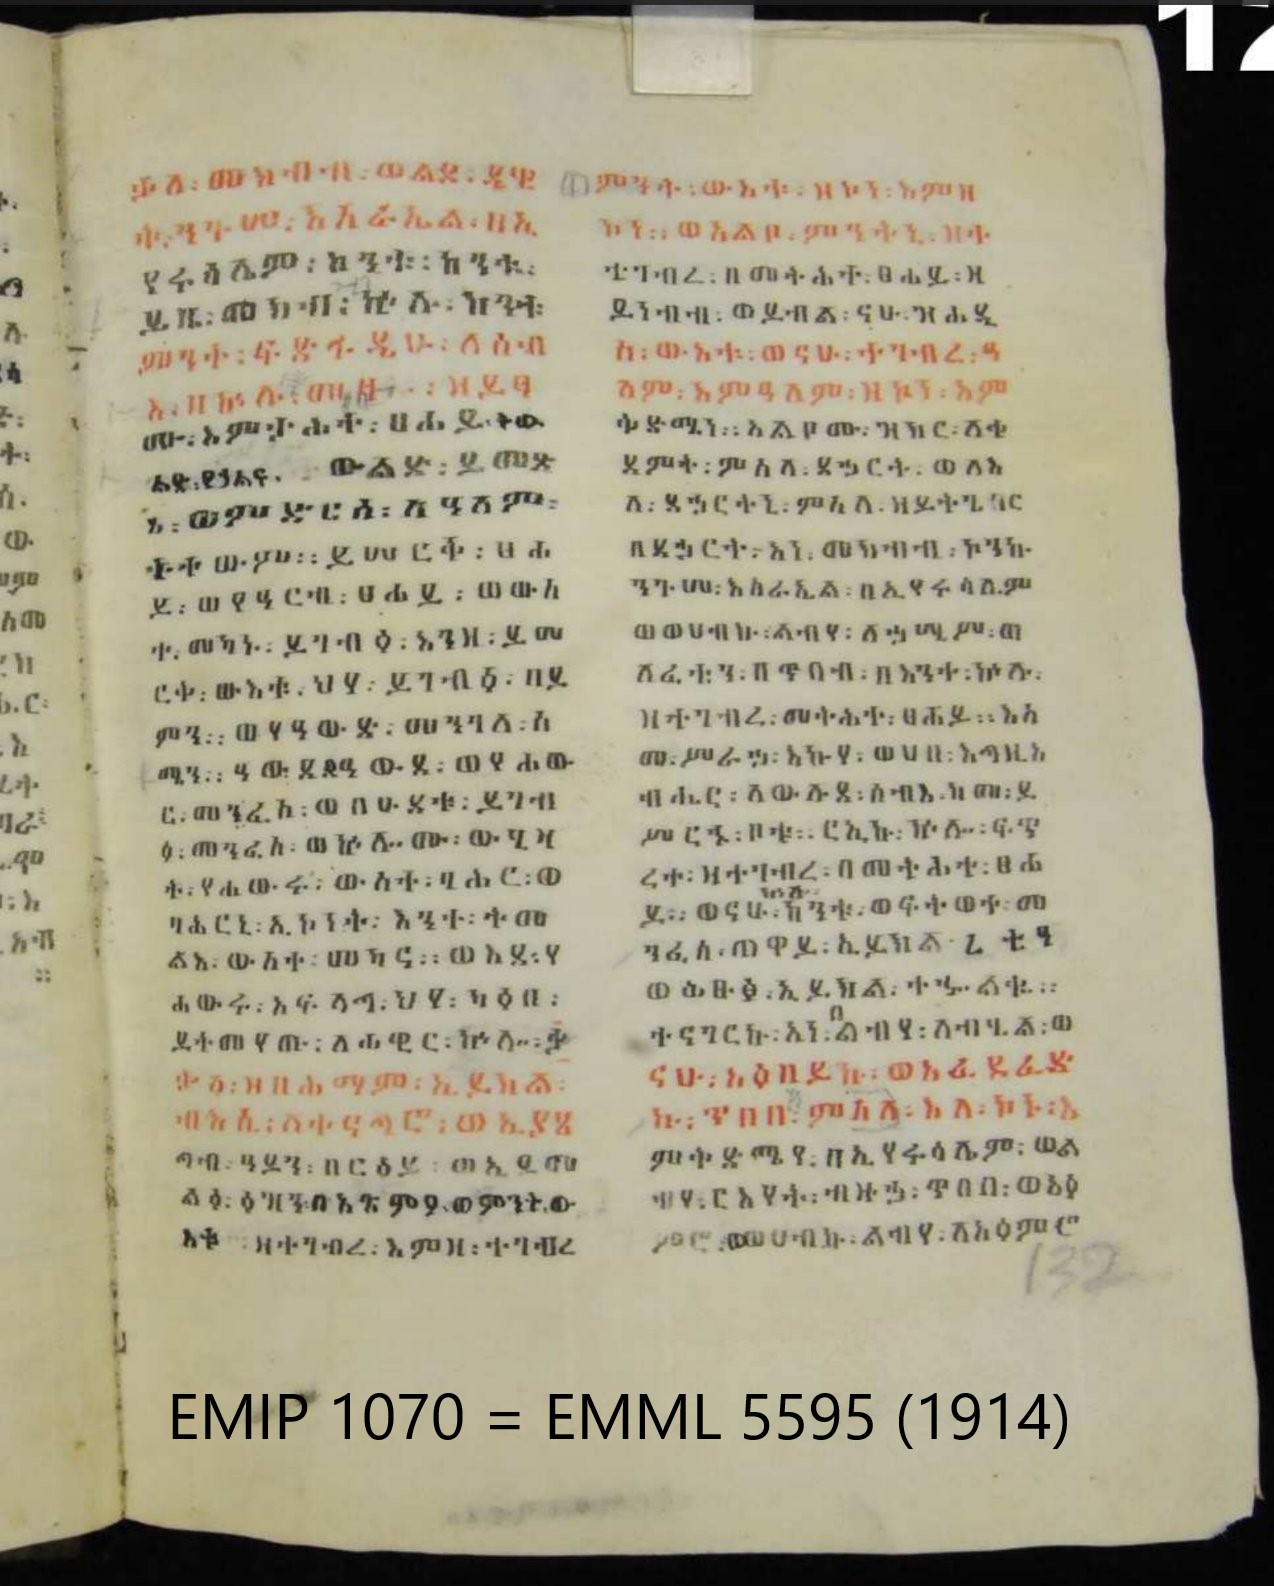 12
ቃለ፡ መክብብ፡ ወልደ፡ ዳዊ
ት፡ ንጉሠ፡ እስራኤል፡ ዘኢ
የሩሳሌም፡ ከንቱ፡ ከንቱ፡
ይቤ፡ መክብብ፡ ኵሉ፡ ከንቱ
ምንት፡ ፍድፋዲሁ፡ ለሰብ
እ፡ በኵሉ፡ ዘይፃ
ሙ፡ እምታሕተ፡ ፀሐይ፡ ትው
ልድ፡ ውልድ፡ ይመጽ
እ፡ ወምድርሰ፡ ለዓለም፡
ትቀውም፡፡ ይሠርቅ፡ ፀሐ
ይ፡ ወየዓርብ፡ ፀሐይ፡ ወውስ
ተ፡ መካኑ፡ ይገብዕ፡ እንዘ፡ ይሠ
ርቅ፡ ውእቱ፡ ህየ፡ ይገብዕ፡ በይ
ምን፡፡ ወየዓውድ፡ መንገለ፡ ሰ
ሜን፡፡ ዓውደ ዖውደ፡ ወየሐው
ር፡ መንፈስ፡ ወበዑደቱ፡ ይገብ
ዕ፡ መንፈስ፡ ወኵሉ፡ ሙ፡ ውሂዛ
ት፡ የሐውሩ፡ ውስተ፡ ባሕር፡ ወ
ባሕርኒ፡ ኢኮነት፡ እንተ፡ ትመ
ልእ፡ ውስተ፡ መካና፡፡ ወእደ፡ የ
ሐውሩ፡ አፍላግ፡ ህየ፡ ካዕበ፡
ይትመየጡ፡ ለሐዊር፡ ኵሉ፡ ቃ
ብእሲ፡ ለተናግሮ፡ ወኢያጸ
ግብ፡ ዓይን፡ በርእይ፡ ወኢይመ
ልዕ፡ ዕዝን በአጽምዖ ወምንት ው
እቱ ዘተገብረ፡ እምዘ፡ ተገብረ
ምንት፡ ውእቱ፡ ዘኮነ፡ እምዘ
ኮነ፡፡ ወአልቦ፡ ምንትኒ፡ ዘት
ትገብረ፡ በመትሕተ፡ ፀሐይ፡ ዘ
ይነብብ፡ ወይብል፡ ናሁ፡ ዝሐዲ
ስ፡ ውእቱ፡ ወናሁ፡ ተገብረ፡ ዓ
ለም፡ እምዓለም፡ ዘኮነ፡ እም
ቅድሜነ፡፡ አልቦሙ፡ ዝክር፡ ለቀ
ደምት፡ ምስለ፡ ደኃርት፡ ወለእ
ለ፡ ደኃርትኒ፡ ምስለ፡ ዘይትጌበር
በደኃርት፡ አነ፡ መክብብ፡ ኮንኩ
ንጉሠ፡ እስራኤል፡ በኢየሩሳሌም
ወወሀብኩ፡ ልብየ፡ ለኃሢሥ፡ ወ
ለፈቲን፡ በጥበብ፡ በእንተ፡ ኵሉ፡
ዘተገብረ፡ መትሕተ፡ ፀሐይ፡፡ እስ
መ፡ ሥራኃ፡ እኩየ፡ ወሀበ፡ እግዚአ
ብሔር፡ ለውሉደ፡ ሰብእ፡ ከመ፡ ይ
ሥርሑ፡ ቦቱ፡፡ ርኢኩ፡ ኵሎ፡ ፍጥ
ረተ፡ ዘተገብረ፡ በመትሕተ፡ ፀሐ
ኵሉ፡
ይ፡፡ ወናሁ፡ ከንቱ፡ ወፍትወተ፡ መ
ንፈስ፡ ጠዋይ፡ ኢይክል
ወፁፀ፡ ኢይክል፡ ተኈልቈ፡፡
በ
ተናገርኩ፡ አነ፡ ልብየ፡ ለብሂል፡ ወ
ናሁ፡ አዕበይኩ፡ ወአፈድፈድ
ኩ፡ ጥበበ፡ ምስለ፡ እለ፡ ኮኑ፡ እ
ምቅድሜየ፡ በኢየሩሳሌም፡ ወል
ብየ፡ ርእየት፡ ብዙኃ፡ ጥበበ፡ ወአዕ
ምሮ፡ ወወሀብኩ፡ ልብየ፡ ለአዕምሮ
132
EMIP 1070 = EMML 5595 (1914)